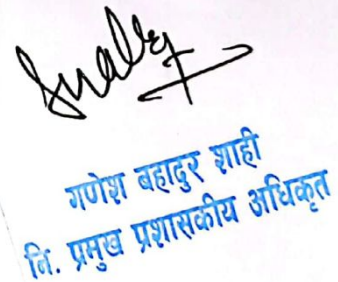 गणेश बहादुर शाही
नि. प्रमुख प्रशासकीय अधिकृत